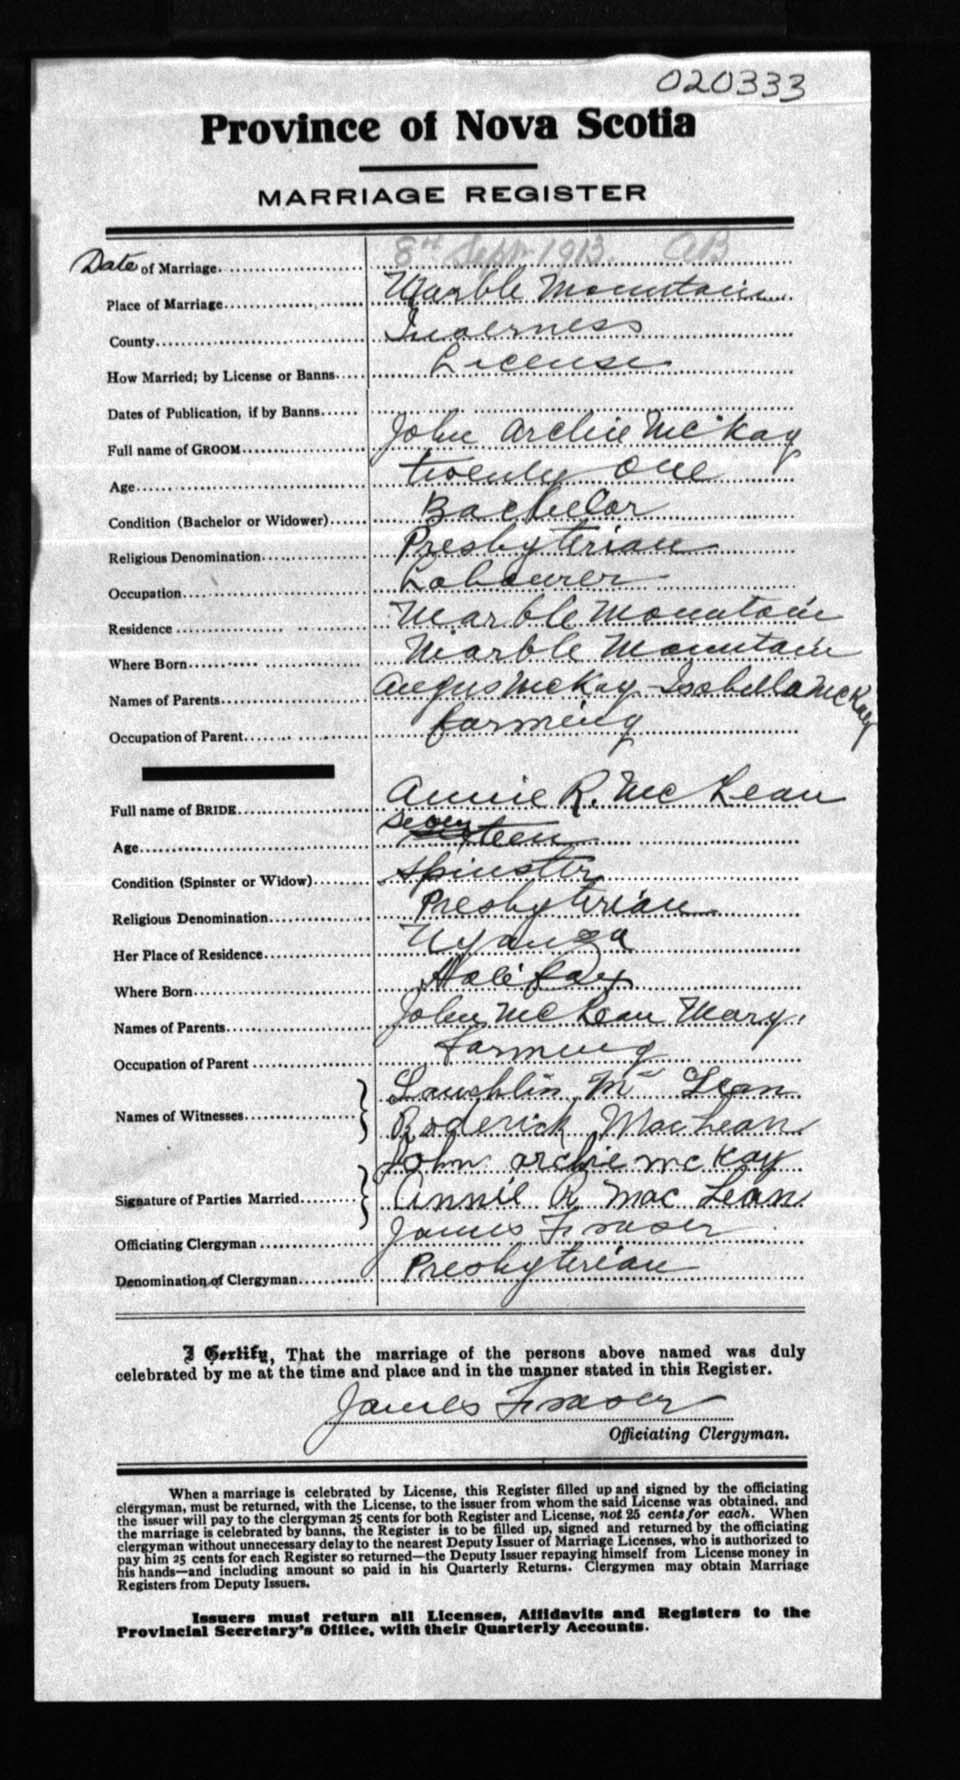 020333
Province of Nova Scotia
MARRIAGE REGISTER
Date of Marriage 8th Sept. 1913. AB
Place of Marriage Marble Mountain
County Inverness
How Married; by License or Banns License
Dates of Publication, if by Banns
Full name of GROOM John Archie McKay
Age twenty one
Condition (Bachelor or Widower) Bachelor
Religious Denomination Presbyterian
Occupation Labourer
Residence Marble Mountain
Where Born Marble Mountain
Names of Parents Angus McKay - Isabella McKay
Occupation of Parent farming
Full name of BRIDE Annie R. McLean
Age seventeen
Condition (Spinster or Widow) Spinster
Religious Denomination Presbyterian
Her Place of Residence Nyanza
Where Born Halifax
Names of Parents John McLean Mary
Occupation of Parent farming
Names of Witnesses Lauchlin McLean
Roderick MacLean
John Archie McKay
Signature of Parties Married Annie R MacLean
Officiating Clergyman James Fraser
Denomination of Clergyman Presbyterian
I Certify, That the marriage of the persons above named was duly
celebrated by me at the time and place and in the manner stated in this Register.
James Fraser
Officiating Clergyman.
When a marriage is celebrated by License, this Register filled up and signed by the officiating
clergyman, must be returned, with the License, to the issuer from whom the said License was obtained, and
the issuer will pay to the clergyman 25 cents for both Register and License, not 25 cents for each. When
the marriage is celebrated by banns, the Register is to be filled up, signed and returned by the officiating
clergyman without unnecessary delay to the nearest Deputy Issuer of Marriage Licenses, who is authorized to
pay him 25 cents for each Register so returned—the Deputy Issuer repaying himself from License money in
his hands—and including amount so paid in his Quarterly Returns. Clergymen may obtain Marriage
Registers from Deputy Issuers.
Issuers must return all Licenses, Affidavits and Registers to the
Provincial Secretary's Office, with their Quarterly Accounts.